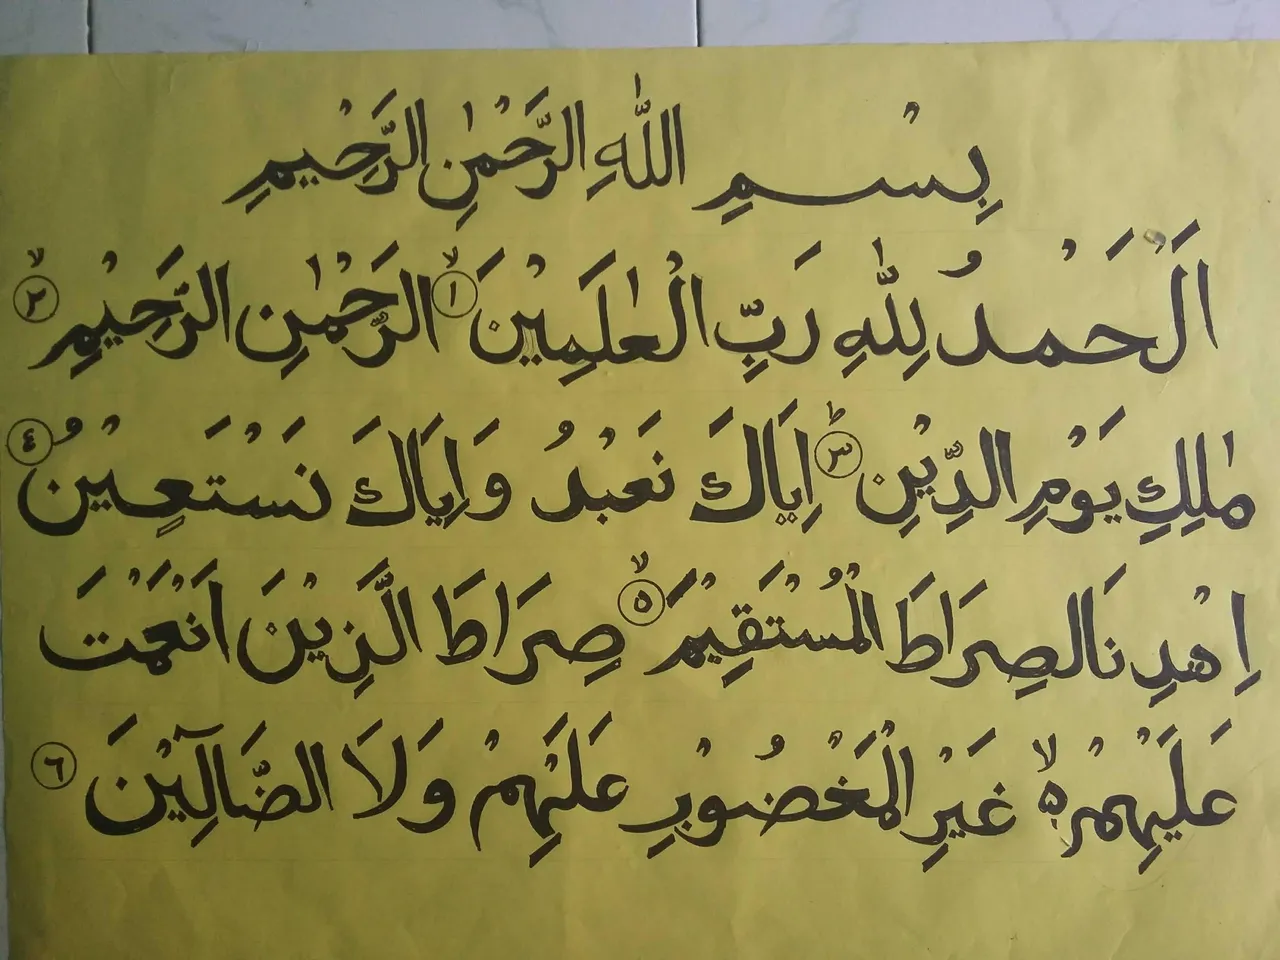 بِسْمِ اللّٰهِ الرَّحْمٰنِ الرَّحِيْمِ
اَلْحَمْدُ لِلّٰهِ رَبِّ الْعٰلَمِيْنَ ۙ﴿١﴾ الرَّحْمٰنِ الرَّحِيْمِ ۙ﴿٢﴾
مٰلِكِ يَوْمِ الدِّيْنِ ؕ﴿٣﴾ اِيَاكَ نَعْبُدُ وَاِيَاكَ نَسْتَعِيْنُ ﴿٤﴾
اِهْدِنَا الصِرَاطَ الْمُسْتَقِيْمَ ۙ﴿٥﴾ صِرَاطَ الَّذِيْنَ اَنْعَمْتَ
عَلَيْهِمْ ۙ۵ غَيْرِ الْمَغْضُوْبِ عَلَيْهِمْ وَلَا الضَّآلِيْنَ ﴿٦﴾